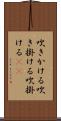 吹きかける吹
き掛ける吹掛
ける